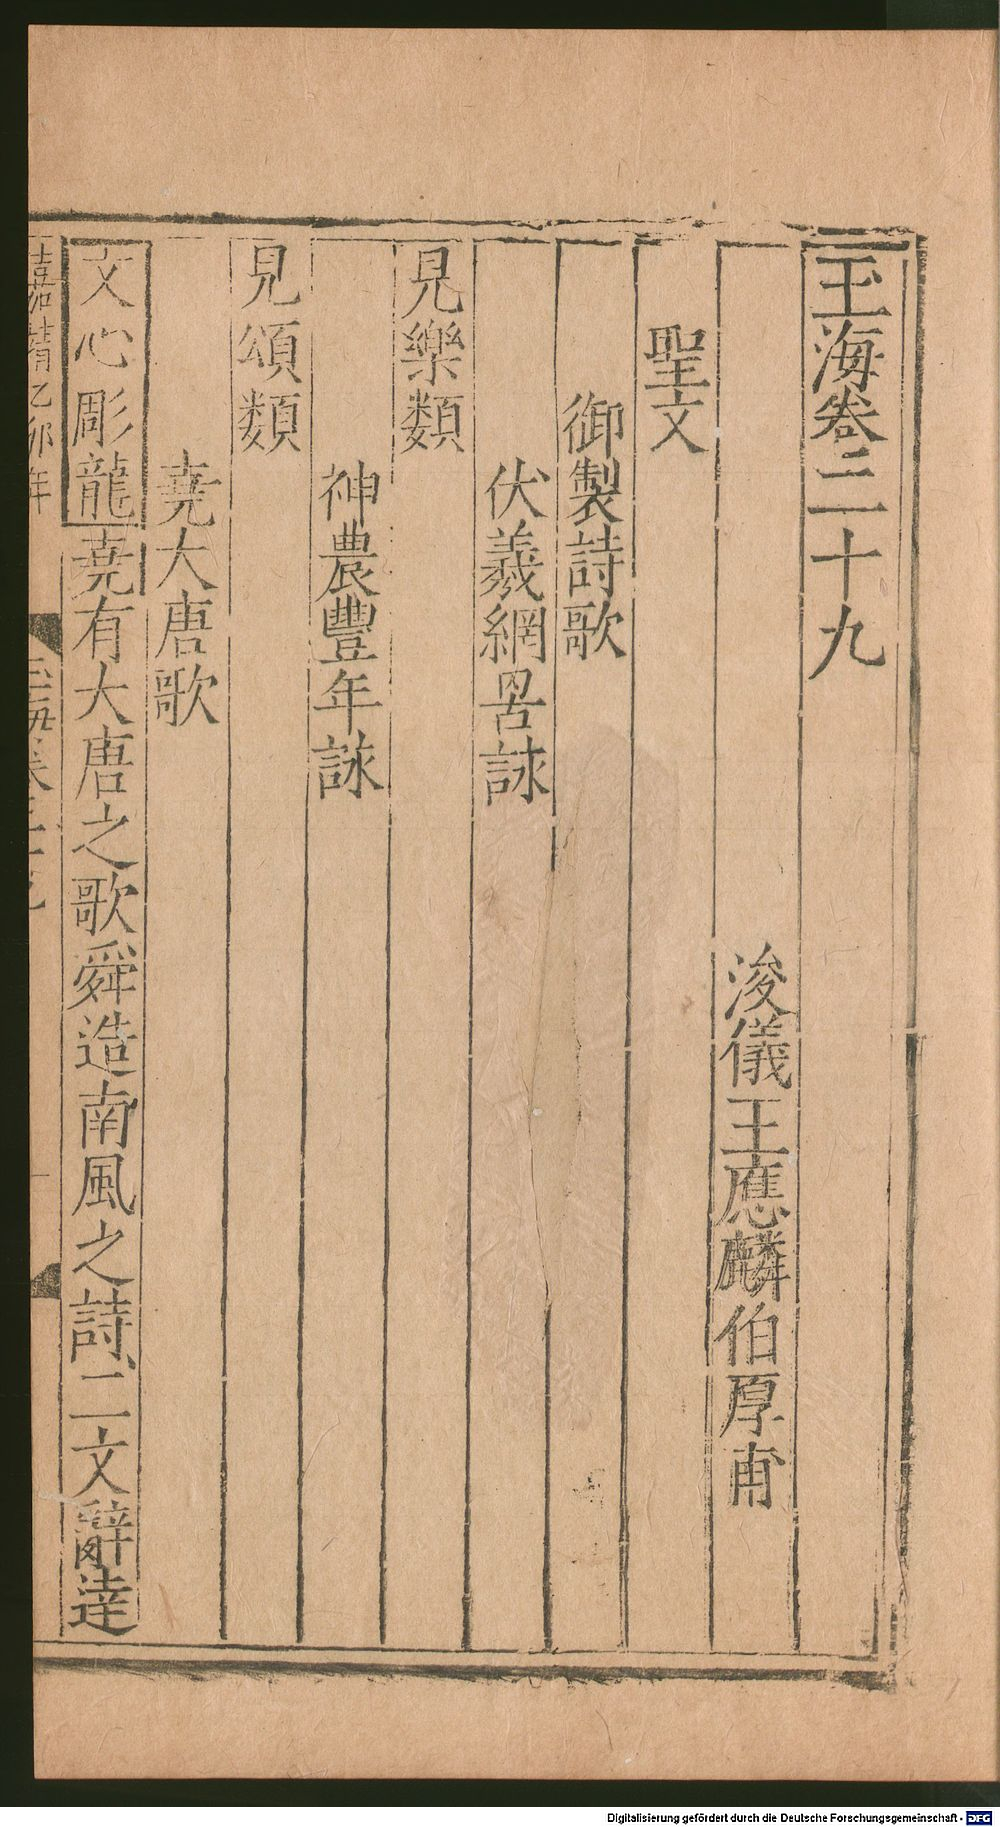 玉海卷二十九
浚儀王應麟伯厚甫
聖文
御製詩歌
伏羲網罟詠
見樂類
神農豐年詠
見頌類
堯大唐歌
文心彫龍堯有大唐之歌舜造南風之詩二文辭達
嘉靖乙卯年
玉海卷二十九
Digitalisierung gefördert durch die Deutsche Forschungsgemeinschaft - DFG